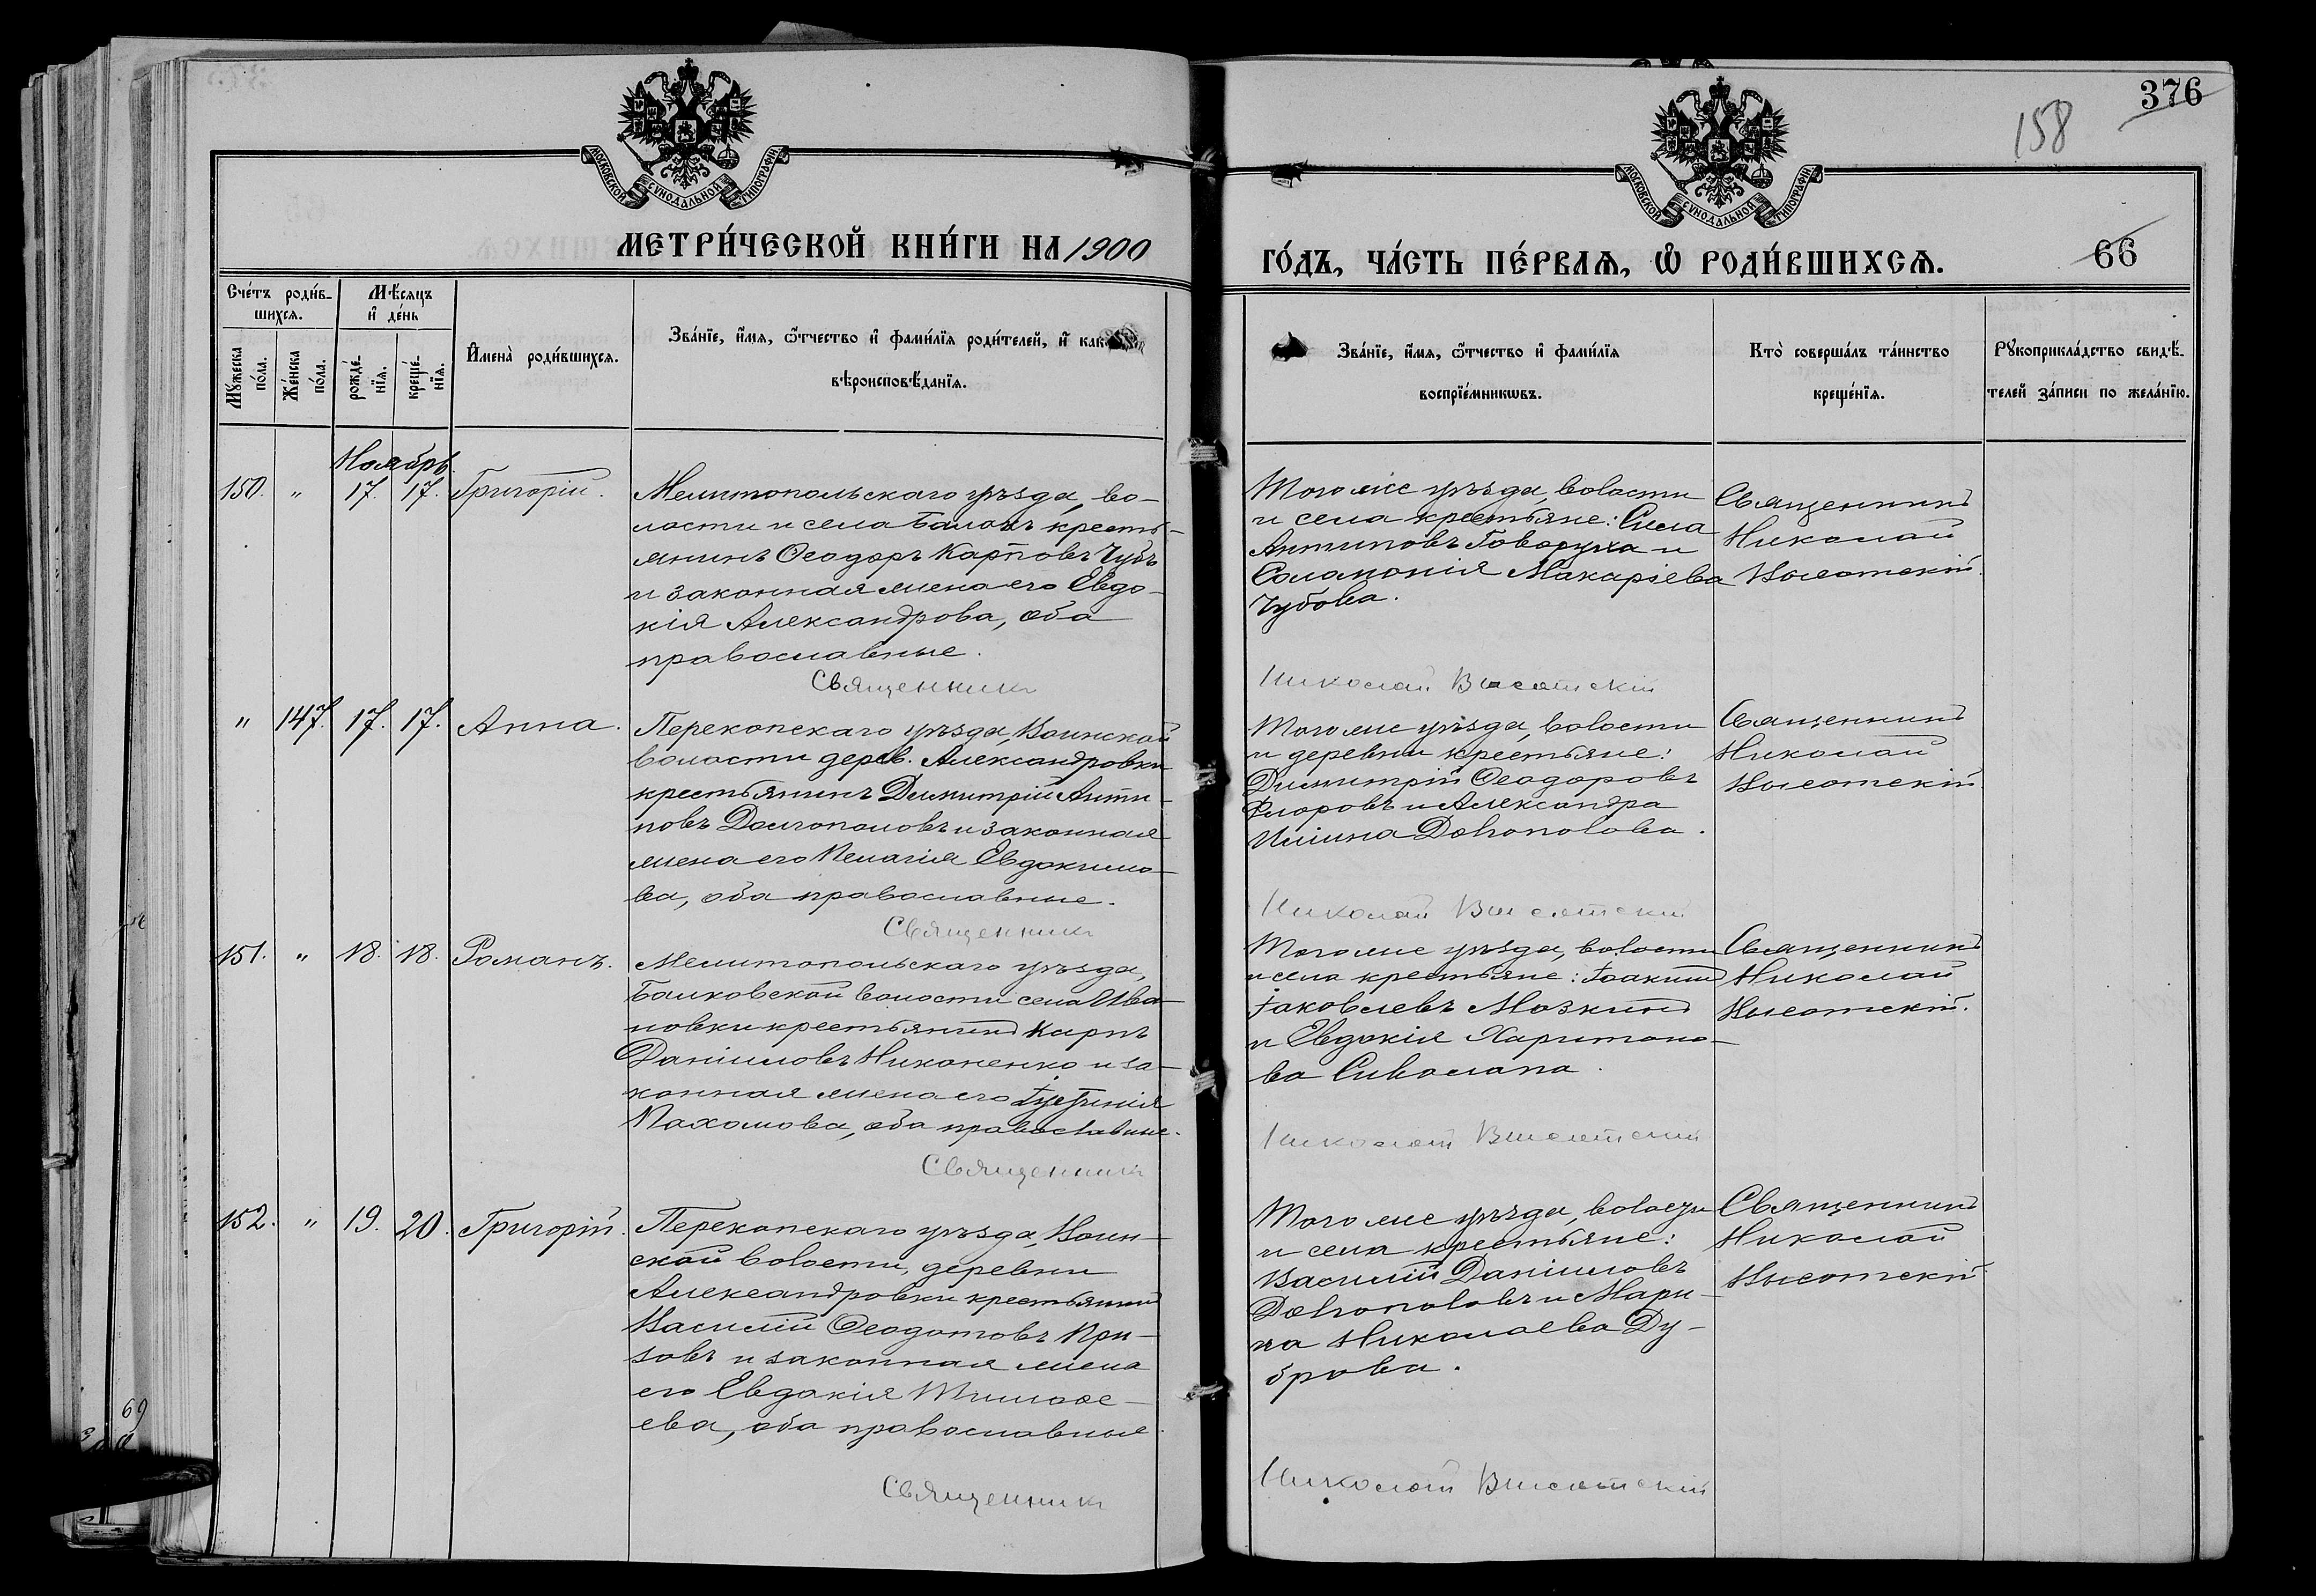 376
158
МОСКОВСКОЙ СУНОДАЛЬНОЙ ТИПОГРАФІИ
МОСКОВСКОЙ СУНОДАЛЬНОЙ ТИПОГРАФІИ
МЕТРИ́ЧЕСКОЙ КНИ́ГИ НА 1900
ГО́ДЪ, ЧА́СТЬ ПЕ́РВАѦ, Ѡ҆ РОДИ́ВШИХСѦ.
66
Сче́тъ роди́в-
шихсѧ.
Мѣ́сяцъ
и҆ де́нь
Мꙋ́жеска
по́ла.
Же́нска
по́ла.
рожде́-
нїѧ.
креще́-
нїѧ.
И҆мена̀ роди́вшихсѧ.
Зва́нїе, и҆́мѧ, ѻ҆́тчество и҆ фами́лїѧ роди́телей, и҆ как
вѣроисповѣ́данїѧ.
Зва́нїе, и҆́мѧ, ѻ҆́тчество и҆ фами́лїѧ
воспрїе́мникѡвъ.
Кто̀ соверша́лъ та́инство
креще́нїѧ.
Рꙋкоприкла́дство свидѣ́-
телей за́писи по жела́нїю.
Ноябрь.
150. " 17. 17. Григорій.
Мелитопольскаго уѣзда, во-
лости и села Балокъ кресть-
янинъ Ѳеодоръ Карповъ Чубъ
и законная жена его Евдо-
кія Александрова, оба
православные.
Священникъ
Того же уѣзда, волости
и села крестьяне: Сила
Антиповъ Говоруха и
Соломонія Макаріева
Чубова.
Николай Высотскій
Священникъ
Николай
Высотскій.
" 147. 17. 17. Анна.
Перекопскаго уѣзда, Воинской
волости дерев. Александровки
крестьянинъ Димитрій Анти-
повъ Долгополовъ и законная
жена его Пелагія Евдокимо-
ва, оба православные.
Священникъ
Того же уѣзда, волости
и деревни крестьяне:
Димитрій Ѳеодоровъ
Флоровъ и Александра
Иліина Долгополова.
Николай Высотскій
Священникъ
Николай
Высотскій
151. " 18. 18. Романъ.
Мелитопольскаго уѣзда,
Балковской волости села Ива-
новки крестьянинъ Карпъ
Даніиловъ Никоненко и за-
конная жена его
Пахомова, оба православные.
Священникъ
Того же уѣзда, волости
и села крестьяне: Іоакимъ
Іаковлевъ Мозкинъ
и Евдокія Харитоно-
ва
Николай Высотскій
Священникъ
Николай
Высотскій.
152. " 19. 20. Григорій.
Перекопскаго уѣзда, Воин-
ской волости, деревни
Александровки крестьянинъ
Василій Ѳеодотовъ При-
зовъ и законная жена
его Евдокія Тимоѳе-
ева, оба православные.
Священникъ
Того же уѣзда, волости
и села крестьяне:
Василій Даніиловъ
Долгополовъ и Мари-
на Николаева Ду-
брова.
Николай Высотскій
Священникъ
Николай
Высотскій
69